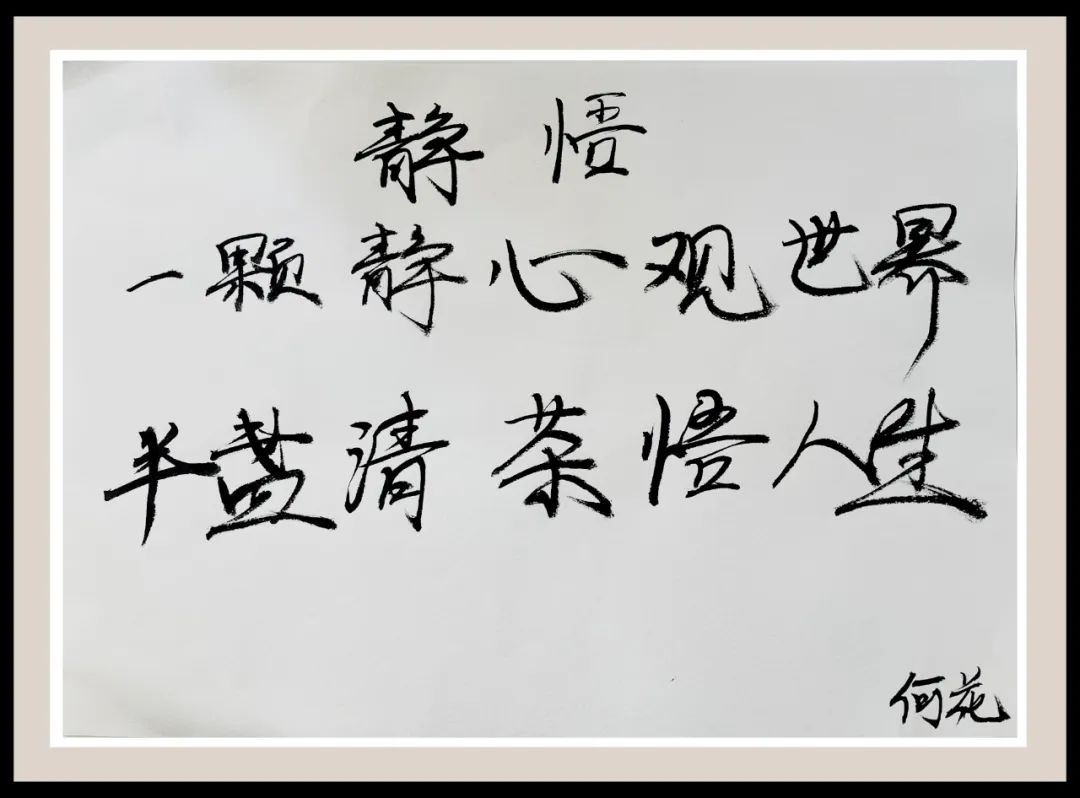 静悟
一颗静心观世界
半盏清茶悟人生
何花